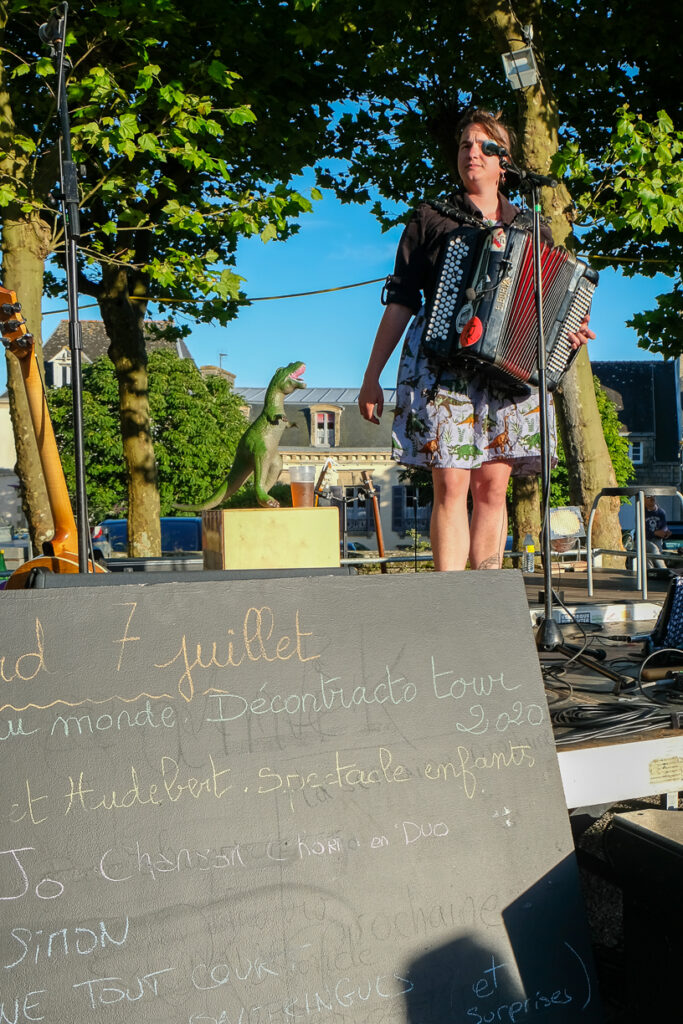 rd 7 juillet
au monde. Décontracto tour
2020
et Hudebert. Spectacle enfants
Jo Chanson en DUO
SIMON
NE TOUT COUR
SALTRINGUES (et
surprises)